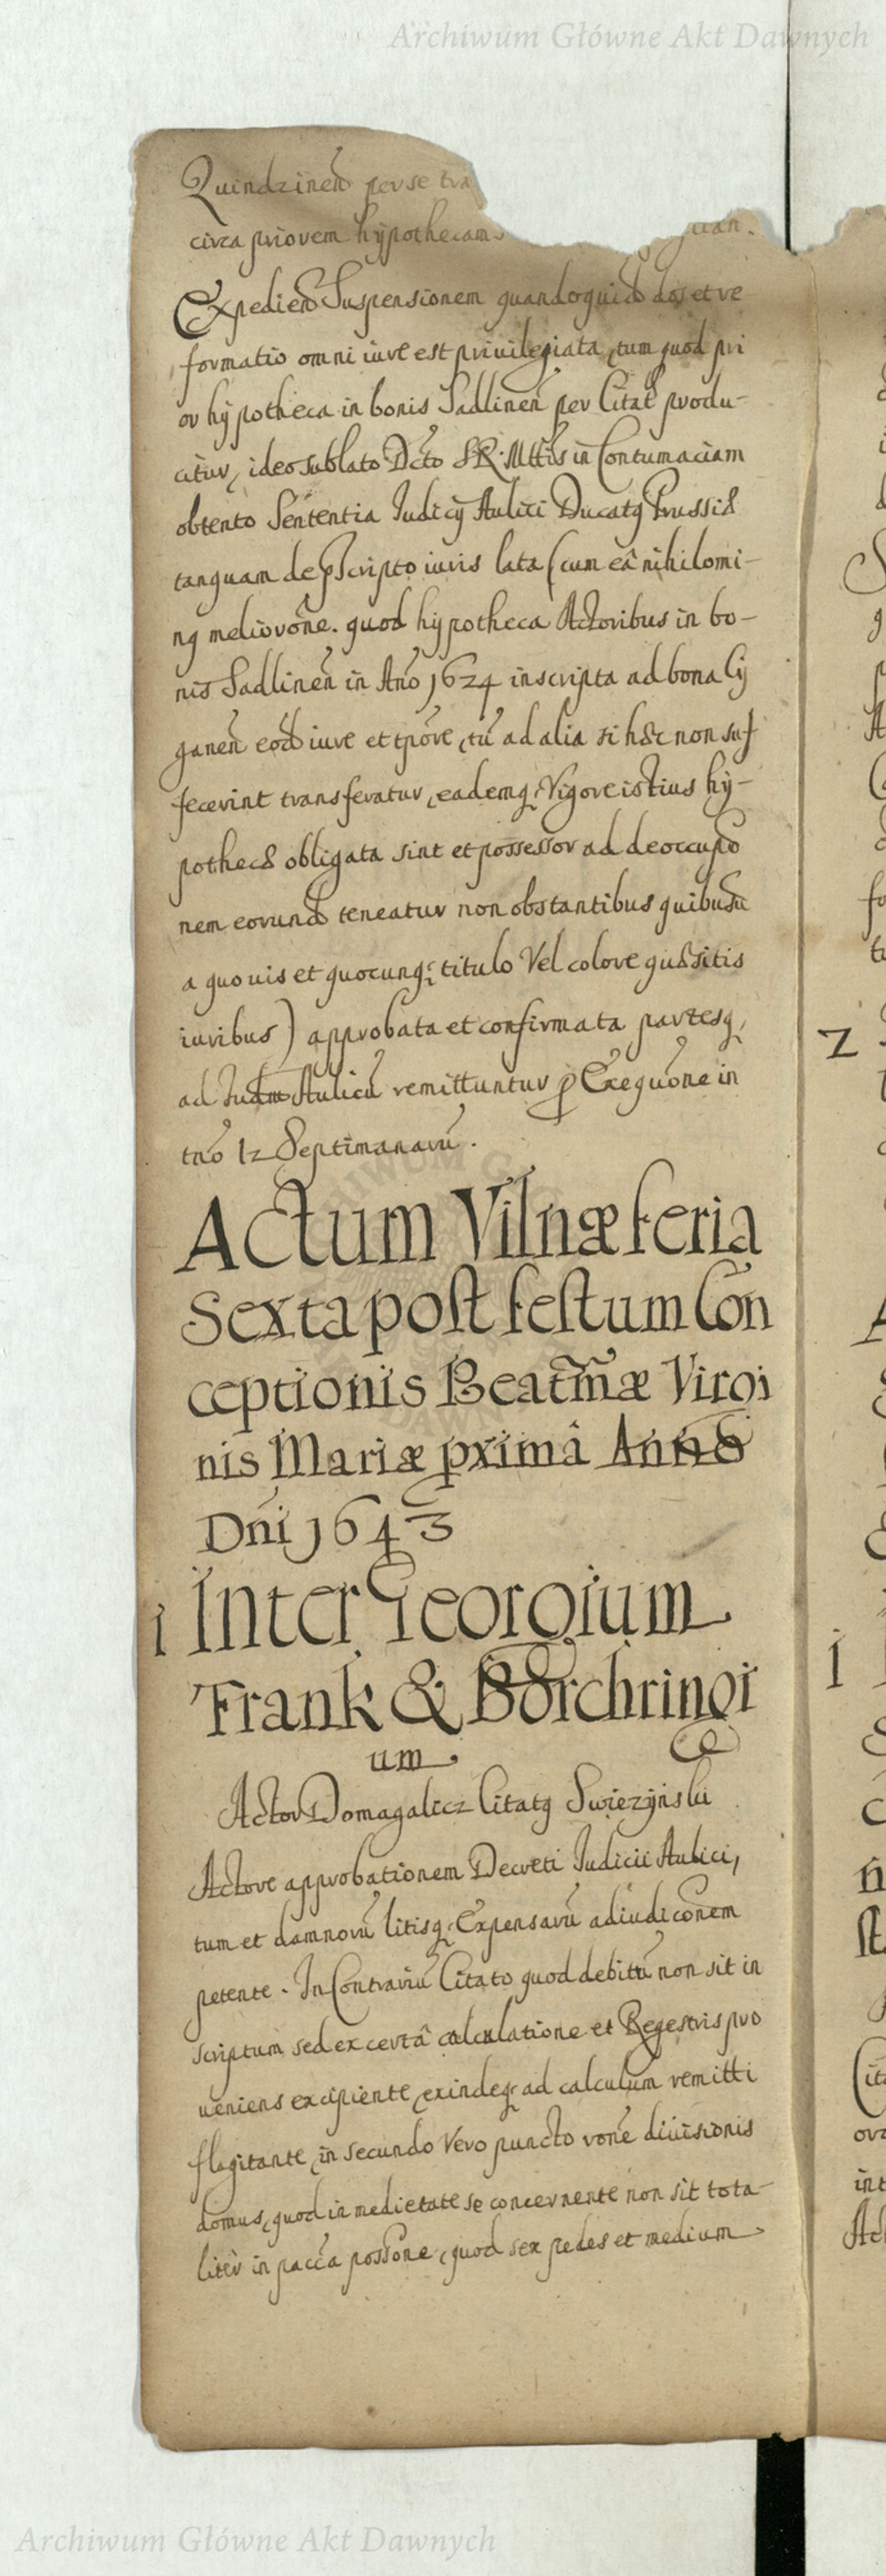 Archiwum Główne Akt Dawnych
Quindzineñ per se tra
circa priorem hÿpothecam
Expedieñ Suspensionem quandoquid dos et re
formatio omni iure est priuilegiata, tum quod pri
or hÿpotheca in bonis Sadlineñ per Citat produ-
citur, ideo sublato Dcto S.R.Mttis in Contumaciam
obtento Sententia Judicÿ Aulici Ducatq Prussiæ
tanquam de pscripto iuris lata (cum eâ nihilomi-
nq meliorõne. quod hÿpotheca Actoribus in bo-
nis Sadlineñ in Año 1624 inscripta ad bona Cÿ
ganeñ eod iure et tpõre, tũ ad alia si hæc non suf
fecerint transferatur, eademq; Vigore istius hÿ-
pothecæ obligata sint et possessor ad deoccupõ
nem eorund teneatur non obstantibus quibusũ
a quouis et quocunq; titulo Vel colore quæsitis
iuribus) approbata et confirmata partesq,
ad Iudm Aulicũ remittuntur p Exequõne in
tño 12 Septimanarũ.
Actum Vilnæ feria
Sexta post festum Con
ceptionis Beatm̃æ Virgi
nis Mariæ pximâ Anno
Dñi 1643
1 Inter Georgium
Frank & Borchringi
um
Actor Domagalicz Citatq Swiezÿnski
Actore approbationem Decreti Judicii Aulici,
tum et damnorũ litisq; Expensarũ adiudicõnem
petente. In Contrariũ Citato quod debitũ non sit in
scriptum sed ex certâ calculatione et Regestris pro
ueniens excipiente, exindeq; ad calculum remitti
flagitante, in secundo Vero puncto rõne diuisionis
domus, quod in medietate se concernente non sit tota-
liter in paccã possõne, quod sex pedes et medium
Archiwum Główne Akt Dawnych